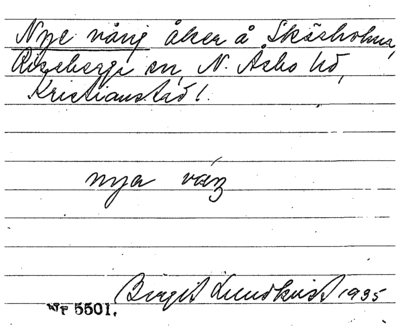 Nye vång åker å Skäsholma,
Riseberga sn, N. Åsbo hd,
Kristianstad l.
nya váŋ
Birgit Lundkvist 1935
WF 5501.